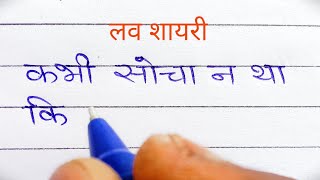 लव शायरी
कभी सोचा न था
कि